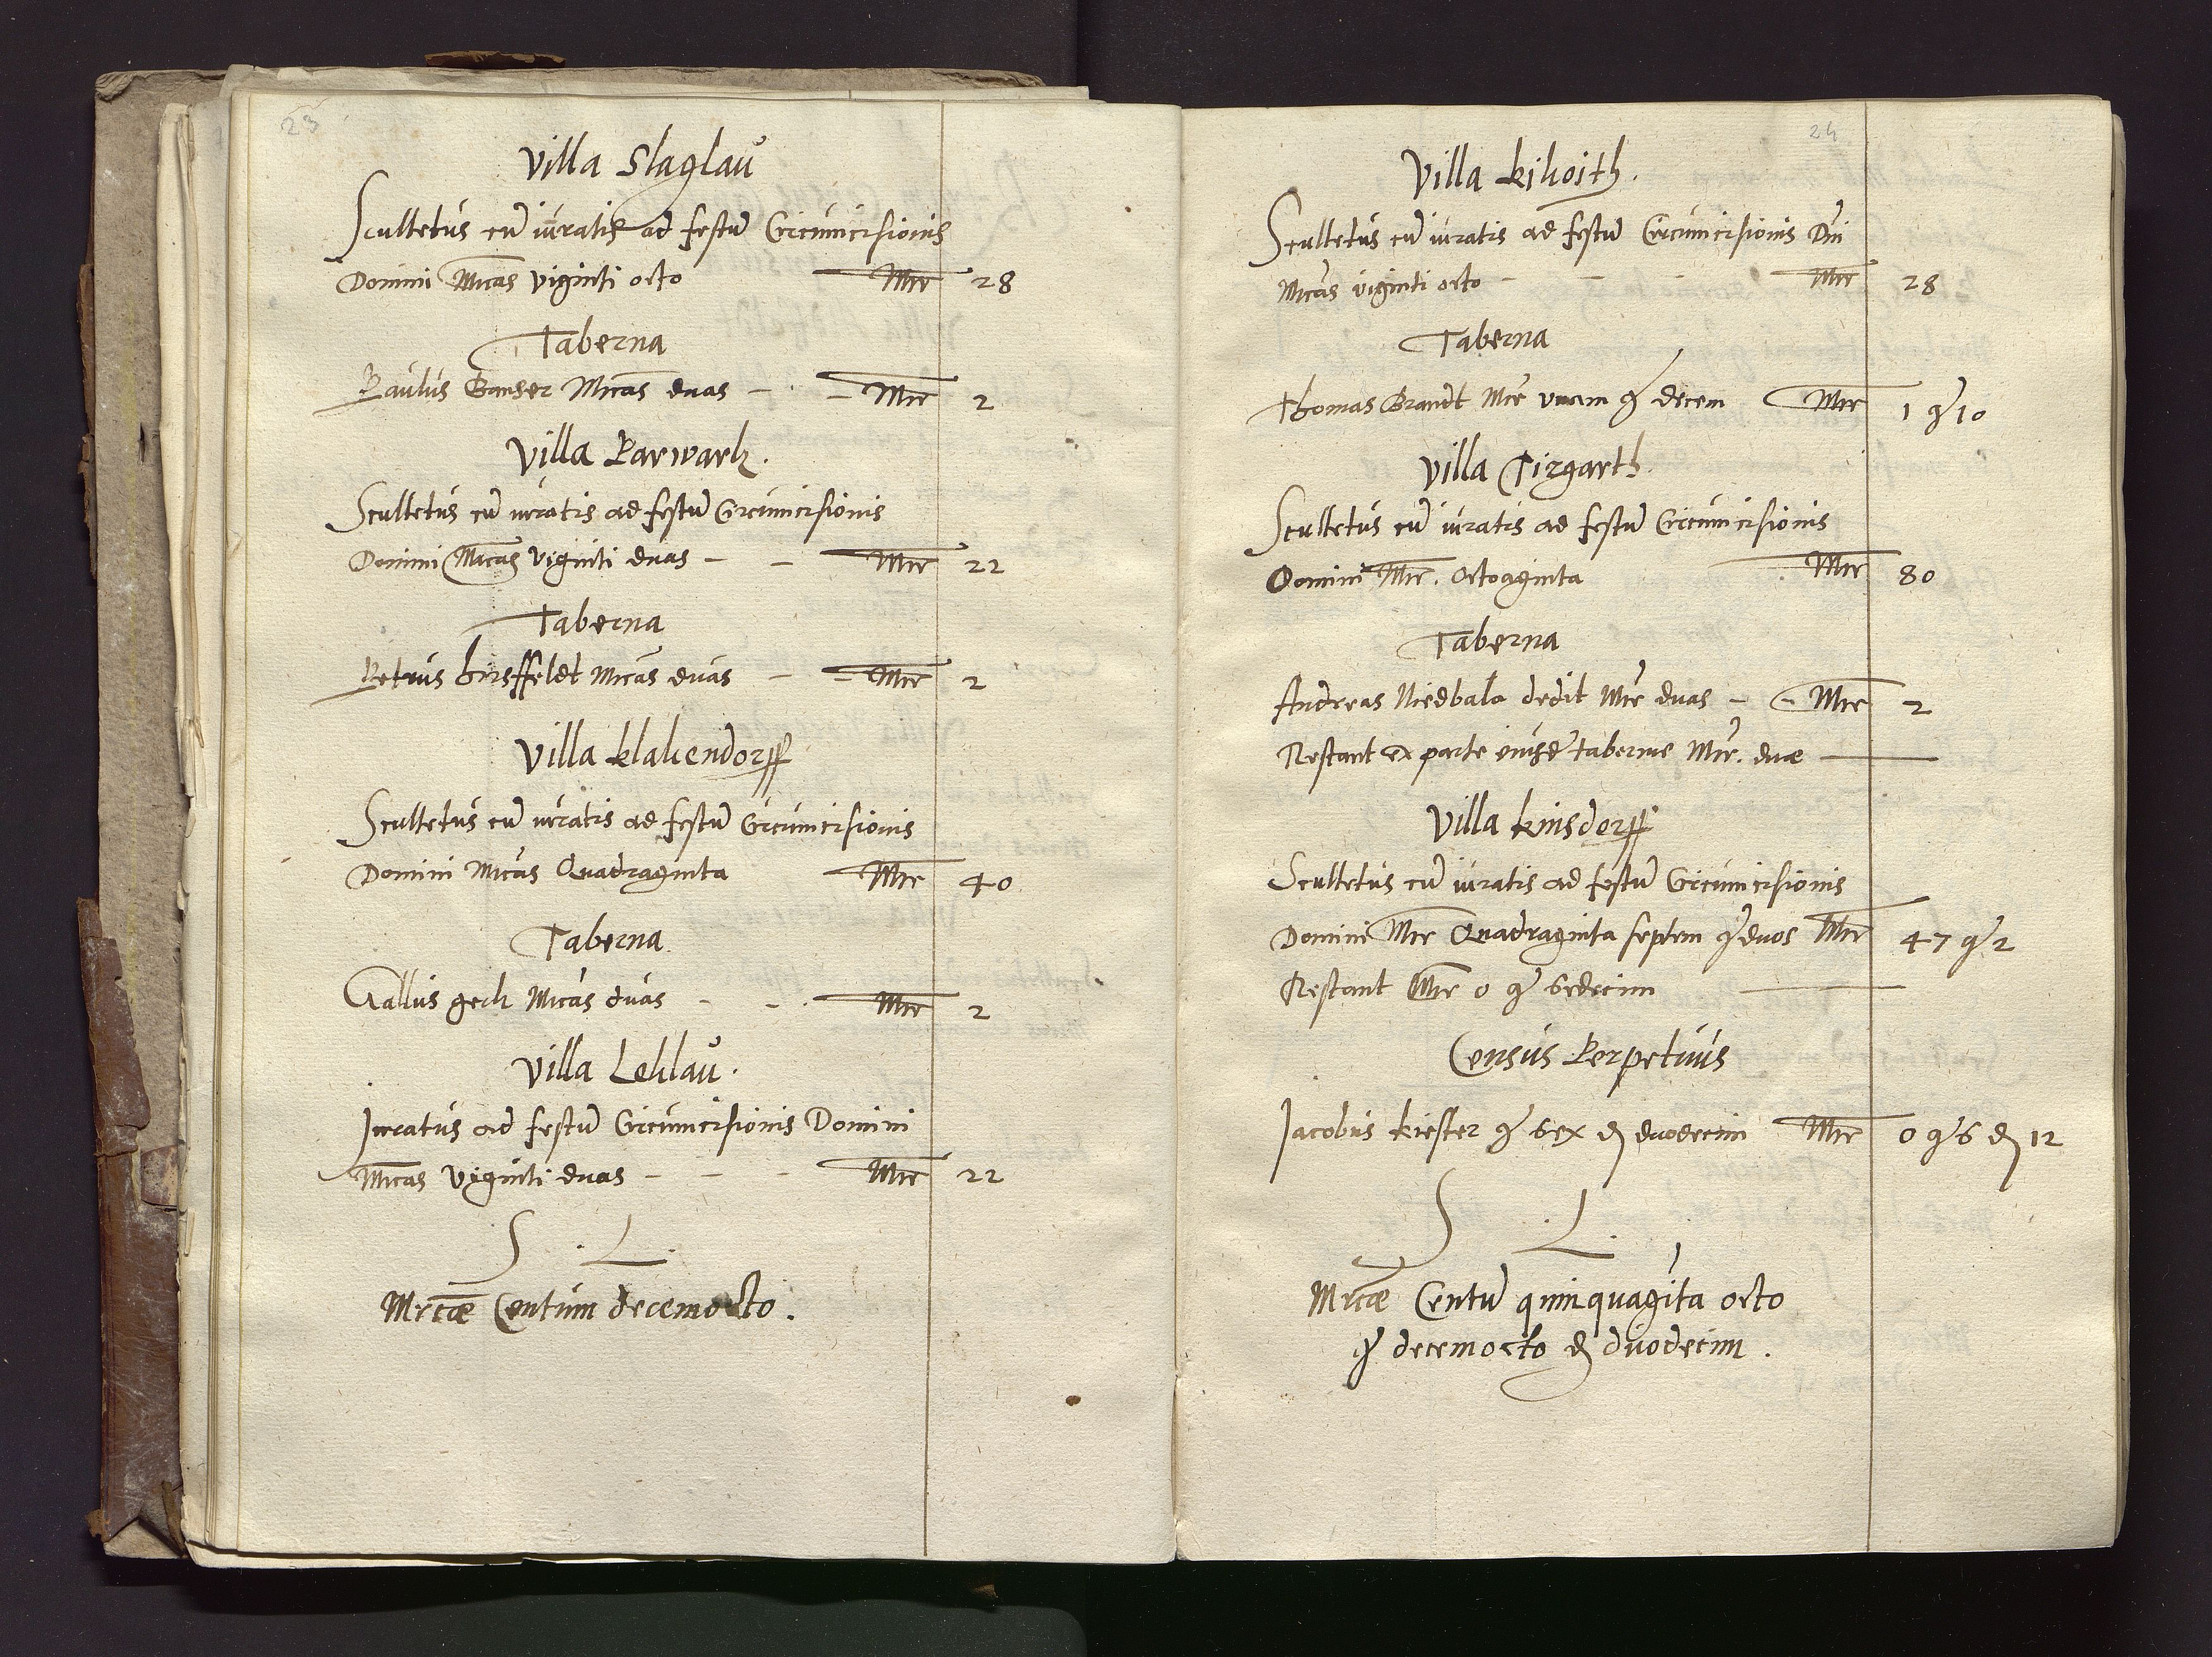 23
Villa Slaglau
Scultetus cũ iuratis ad festũ Circumcisionis
Domini Mrcas viginti octo Mrc 28
Taberna
Paulus Ganser Mrcas duas - - Mrc 2
Villa Parwark.
Scultetus cũ iuratis ad festũ Circumcisionis
Domini Mrcas viginti duas - - Mrc 22
Taberna
Petrus Hirsffeldt Mrcas duas - - Mrc 2
Villa klakendorff
Scultetus cũ iuratis ad festũ Circumcisionis
Domini Mrcas Quadraginta Mrc 40
Taberna
Gallus gech Mrcas duas - - Mrc 2
Villa Leklau.
Iuratus ad festũ Circumcisionis Domini
Mrcas viginti duas - - - Mrc 22
S . L .
Mrcæ Centum decemocto.
24
Villa kikoith.
Scultetus cũ iuratis ad festũ Circumcisionis Dni
Mrcas viginti octo - Mrc 28
Taberna
Thomas Brandt Mrc unam gr decem Mrc 1 gr 10
Villa Tirgarth.
Scultetus cũ iuratis ad festũ Circumcisionis
Domini Mrc. octoaginta Mrc 80
Taberna
Andreas Niedbala dedit Mrc duas - - Mrc 2
Restant ex parte eiusdẽ tabernæ Mrc. duæ
Villa kinsdorff
Scultetus cũ iuratis ad festũ Circumcisionis
Domini Mrc Quadraginta septem gr duos Mrc 47 gr 2
Restant Mrc 0 gr sedecim
Census Perpetuus
Iacobus kiester gr sex d duodecim Mrc 0 gr 6 d 12
S . L .
Mrcæ Centũ quinquagĩta octo
gr decemocto d duodecim .